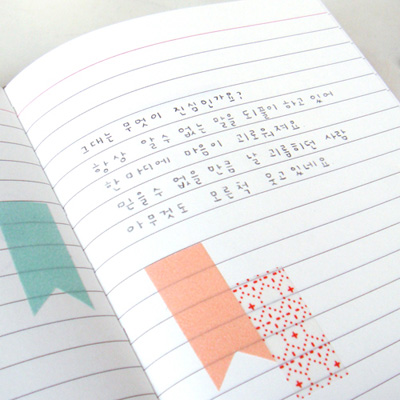 그대는 무엇이 진심인가요?
항상 알수 없는 말을 되풀이 하고 있어
한마디에 마음이 괴로워져요
믿을수 없을 만큼 날 괴롭히던 사람
아무것도 모른척 웃고있네요